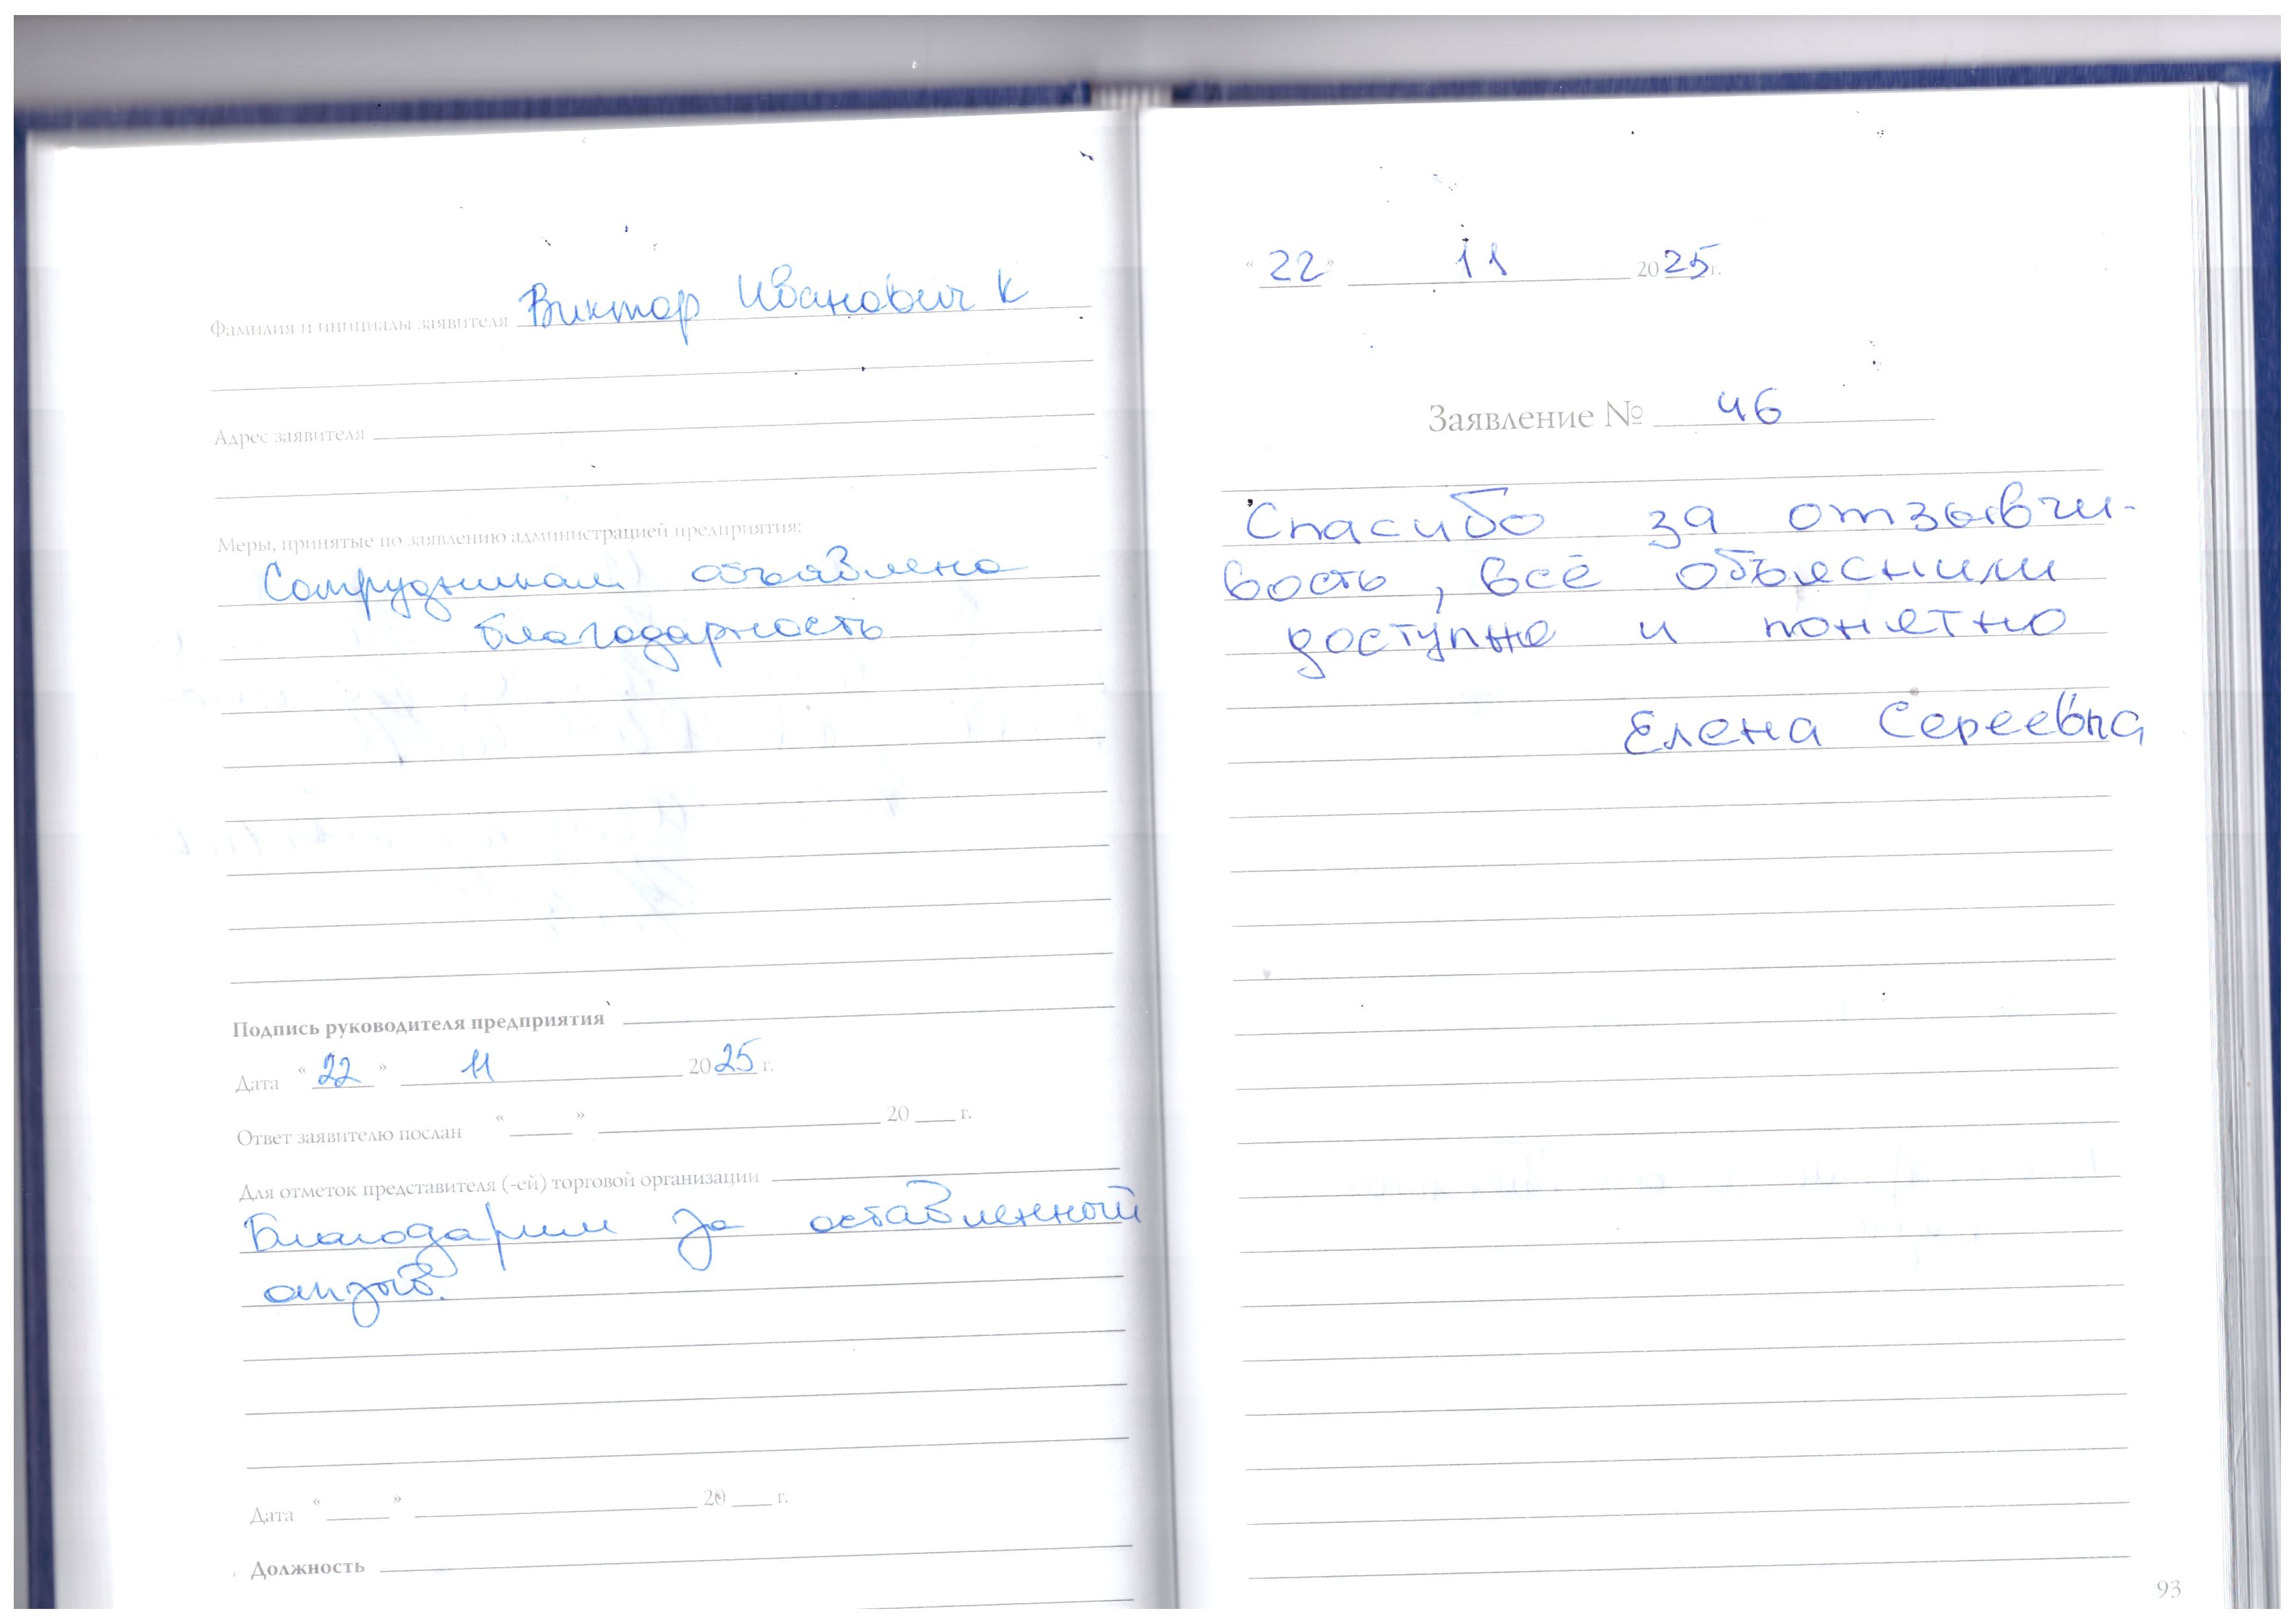 Фамилия и инициалы заявителя Виктор Иванович К
Адрес заявителя
Меры, принятые по заявлению администрацией предприятия:
Сотрудникам объявлена
благодарность
Подпись руководителя предприятия
Дата « 22 » 11 2025 г.
Ответ заявителю послан « » 20 г.
Для отметок представителя (-ей) торговой организации
Благодарим за оставленный
отзыв.
Дата « » 20 г.
Должность
« 22 » 11 2025 г.
Заявление № 46
Спасибо за отзывчи-
вость, всё объяснили
доступно и понятно
Елена Сереевна
93